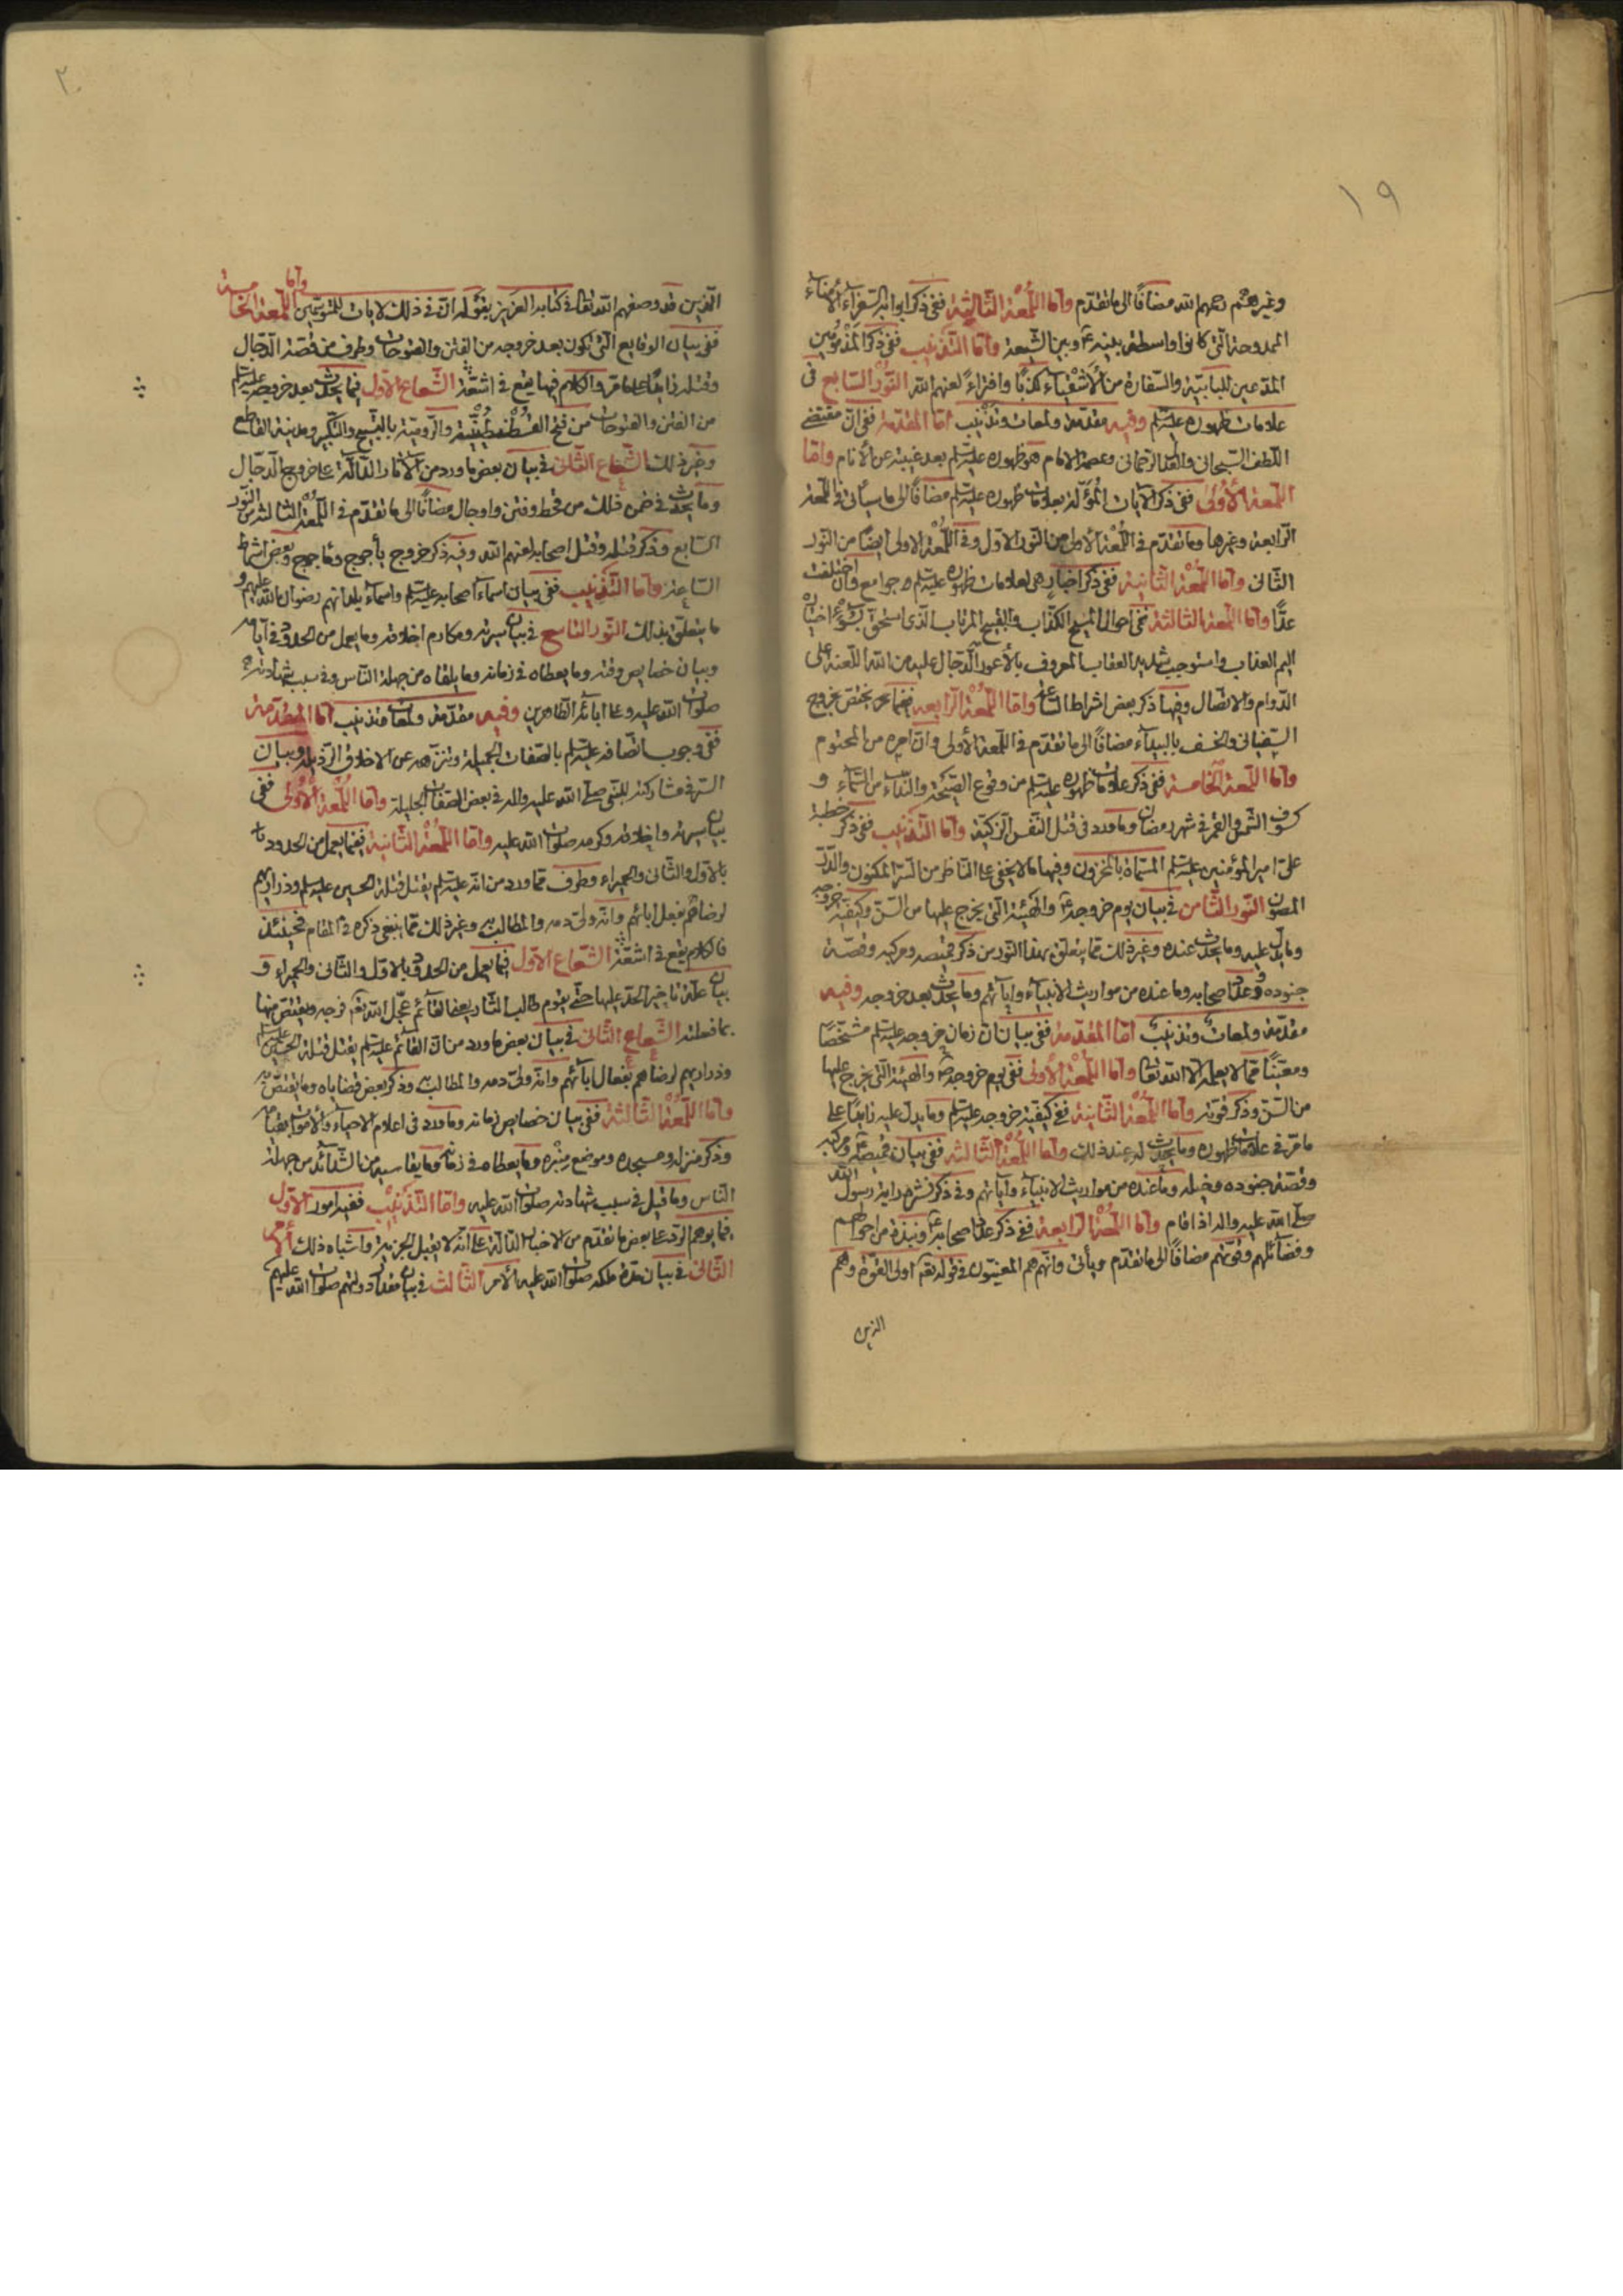 ١٩
وغيرهم رحمهم الله مضافًا الى ما تقدّم وامّا اللّمعة الثّالثة ففي ذكر ابوابه السّفراء الأمناء
الممدوحة الّتي كانوا واسطة بينه ع وبين الشّيعة وامّا التّذنيب ففي ذكر المذمومين
المدّعين للبابيّة والسّفارة من الأشقياء كذبًا وافتراءً لعنهم الله النّور السّابع في
علامات ظهوره عليه السلم وفيه مقدّمة ولمعات وتذنيب امّا المقدّمة ففي انّ مقتضى
اللّطف السّبحاني والعدل الرّحماني وعصمة الامام هو ظهوره عليه السلم بعد غيبته عن الأنام وامّا
اللّمعة الأولى ففي ذكر الآيات المؤوّلة بعلامات ظهوره عليه السلم مضافًا الى ما سيأتي في اللّمعة
الرّابعة وغيرها وما تقدّم في اللّمعة الأولى من النّور الاوّل وفي اللّمعة الاولى ايضًا من النّور
الثّاني وامّا اللّمعة الثّانية ففي ذكر اخبار هي لعلامات ظهوره عليه السلم جوامع وان اختلفت
عدًّا وامّا اللّمعة الثّالثة ففي احوال المسيح الكذّاب والقبيح المرتاب الّذي استحقّ بسوء اختياره
اليم العذاب واستوجب شديد العقاب المعروف بالأعور الدّجّال عليه من الله اللّعنة على
الدّوام والاتّصال وفيها ذكر بعض اشراط السّاعة وامّا اللّمعة الرّابعة ففيما يختصّ بخروج
السّفياني والخسف بالبيداء مضافًا الى ما تقدّم في اللّمعة الأولى وانّ امره من المحتوم
وامّا اللّمعة الخامسة ففي ذكر علامات ظهوره عليه السلم من وقوع الصّيحة والنّداء من السّماء و
كسوف الشّمس والقمر في شهر رمضان وما ورد في قتل النّفس الزّكيّة وامّا التّذنيب ففي ذكر خطبة
علىّ امير المؤمنين عليه السلم المسمّاة بالمخزون وفيها ما لا يخفى على النّاظر من السّرّ المكنون والدّرّ
المصون النّور الثّامن في بيان يوم خروجه ع والهيئة الّتي يخرج عليها من السّنّ وكيفيّة خروجه
وما يدلّ عليه وما يحدث عنده وغير ذلك ممّا يتعلّق بهذا النّور من ذكر قميصه ومركبه وقصّة
جنوده وعدد اصحابه وما عنده من مواريث الانبياء وآياتهم وما يحدث بعد خروجه وفيه
مقدّمة ولمعات وتذنيب امّا المقدّمة ففي بيان انّ زمان خروجه عليه السلم مشخّصًا
ومعيّنًا ممّا لا يعلمه الا الله تعالى وامّا اللّمعة الأولى ففي يوم خروجه ع والهيئة الّتي يخرج عليها
من السّنّ وذكر قوّته وامّا اللّمعة الثّانية ففي كيفيّة خروجه عليه السلم وما يدلّ عليه زايدًا على
ما مرّ في علامات ظهوره وما يحدث له عند ذلك وامّا اللّمعة الثّالثه ففي بيان قميصه ع ومركبه
وقصّة جنوده وخيله وما عنده من مواريث الانبياء وآياتهم وفي ذكر نشره راية رسول الله
صلّى الله عليه واله اذا قام وامّا اللّمعة الرّابعة ففي ذكر عدد اصحابه ع ونبذة من احوالهم
وفضآئلهم وقوّتهم مضافًا الى ما تقدّم ويأتي وانّهم هم المعنيّون في قوله تعالى اولى القوّة وهم
الذين
٢٠
الّذين قد وصفهم الله تعالى في كتابه العزيز بقوله انّ في ذلك لايات للمتوسّمين وامّا اللّمعة الخامسة
ففي بيان الوقايع الّتي تكون بعد خروجه من الفتن والفتوحات وطرف من قصّة الدّجّال
وقتله زايدًا على ما مرّ والكلام فيها يقع في اشعّة الشّعاع الأوّل فيما يحدث بعد خروجه عليه السلم
من الفتن والفتوحات من فتح القسطنطينيّة والرّوميّة بالتّسبيح والتّكبير ومدينة القاطع
وغير ذلك الشّعاع الثّاني في بيان بعض ما ورد من الآثار الدّالّة على خروج الدّجّال
وما يحدث في ضمن ذلك من قحط وفتن واوجال مضافًا الى ما تقدّم في اللّمعة الثالثة من النّور
السّابع وذكر قتله وقتل اصحابه لعنهم الله وفيه ذكر خروج يأجوج ومأجوج وبعض اشراط
السّاعة وامّا التّذنيب ففي بيان اسماء اصحابه عليه السلم واسماء بلدانهم رضوان الله عليهم و
ما يتعلّق بذلك النّور التّاسع في بيان سيرته ومكارم اخلاقه وما يعمل من الحدود في ايّامه
وبيان خصايص وقته وما يعطاه في زمانه وما يلقاه من جهلة النّاس وفي سبب شهادته
صلوات الله عليه وعلى آبائه الطّاهرين وفيه مقدّمة ولمعات وتذنيب امّا المقدّمة
ففي وجوب اتّصافه عليه السلم بالصّفات الجميلة وتنزّهه عن الاخلاق الرّذيلة وبيان
السّرّ في مشاركته للنّبي صلّى الله عليه واله في بعض الصّفات الجليلة وامّا اللّمعة الأولى ففي
بيان سيرته واخلاقه وكرمه صلوات الله عليه وامّا اللّمعة الثّانية ففيما يعمل من الحدود
بالاوّل والثّاني والحميراء وطرف ممّا ورد من انّه عليه السلم يقتل قتلة الحسين عليه السلم وذراريهم
لرضاهم بفعل ابائهم وانّه ولىّ دمه والمطالب به وغير ذلك ممّا ينبغي ذكره في المقام فحينئذ
فالكلام يقع في اشعّة الشّعاع الأوّل فيما يعمل من الحدود بالاوّل والثّاني والحميراء و
بيان علّة تأخير الحدّ عليها حتّى يقوم طالب الثّار يعنى القآئم عجّل الله تعالى فرجه ويقتصّ منها
بما فعلته الشّعاع الثّاني في بيان بعض ما ورد من انّ القائم عليه السلم يقتل قتلة الحسين عليه السلم
وذراريهم لرضاهم بفعال ابآئهم وانّه ولىّ دمه والمطالب به وذكر بعض قضاياه وما يقتصّ به
وامّا اللّمعة الثّالثة ففي بيان خصايص زمانه وما ورد في اعلام الاحياء والأموات بقيامه
وذكر منزله ومسجده وموضع منبره وما يعطاه في زمانه وما يقاسيه من الشّدآئد من جهلة
النّاس وما قيل في سبب شهادته صلوات الله عليه وامّا التّذنيب ففيه امور الأوّل
فيما يوهم الردّ على بعض ما تقدّم من الاخبار الدّالّة على انّه لا يقبل الجزية واشباه ذلك الأمر
الثّاني في بيان مدّة ملكه صلوات الله عليه الأمر الثّالث في بيان مقدار دولتهم صلوات الله عليهم